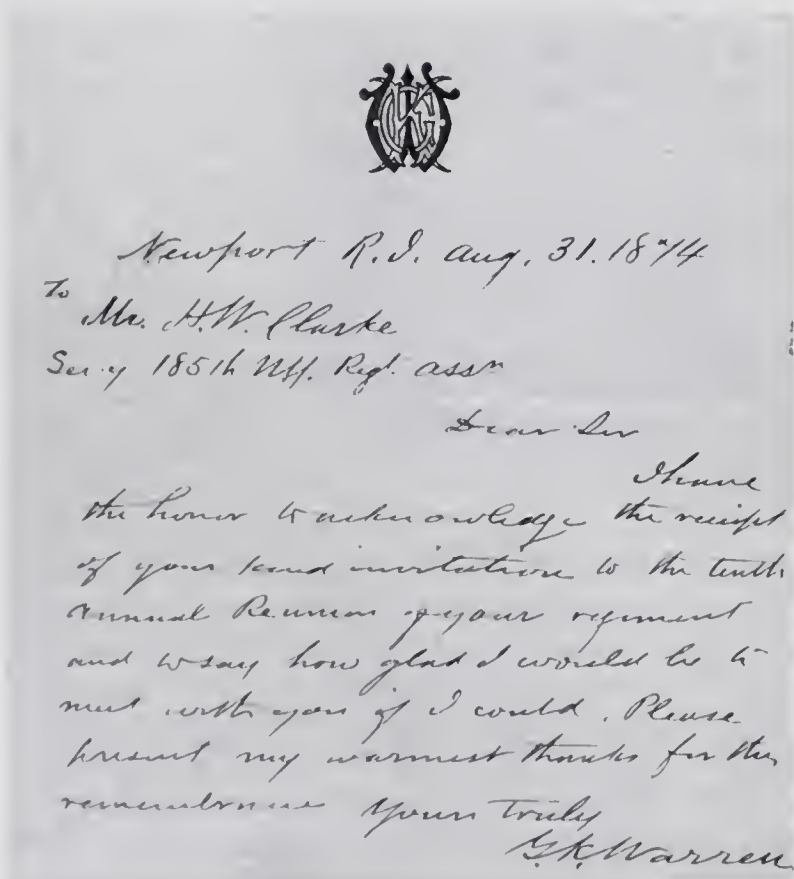 Newport R.I. Aug. 31. 1874
To
Mr. H.W. Clarke
Sec.y 185th N.Y. Regt. assn
Dear Sir
I have
the honor to acknowledge the receipt
of your kind invitation to the tenth
annual Reunion of your regiment
and to say how glad I would be to
meet with you if I could. Please
present my warmest thanks for the
remembrance Yours Truly
G.K. Warren